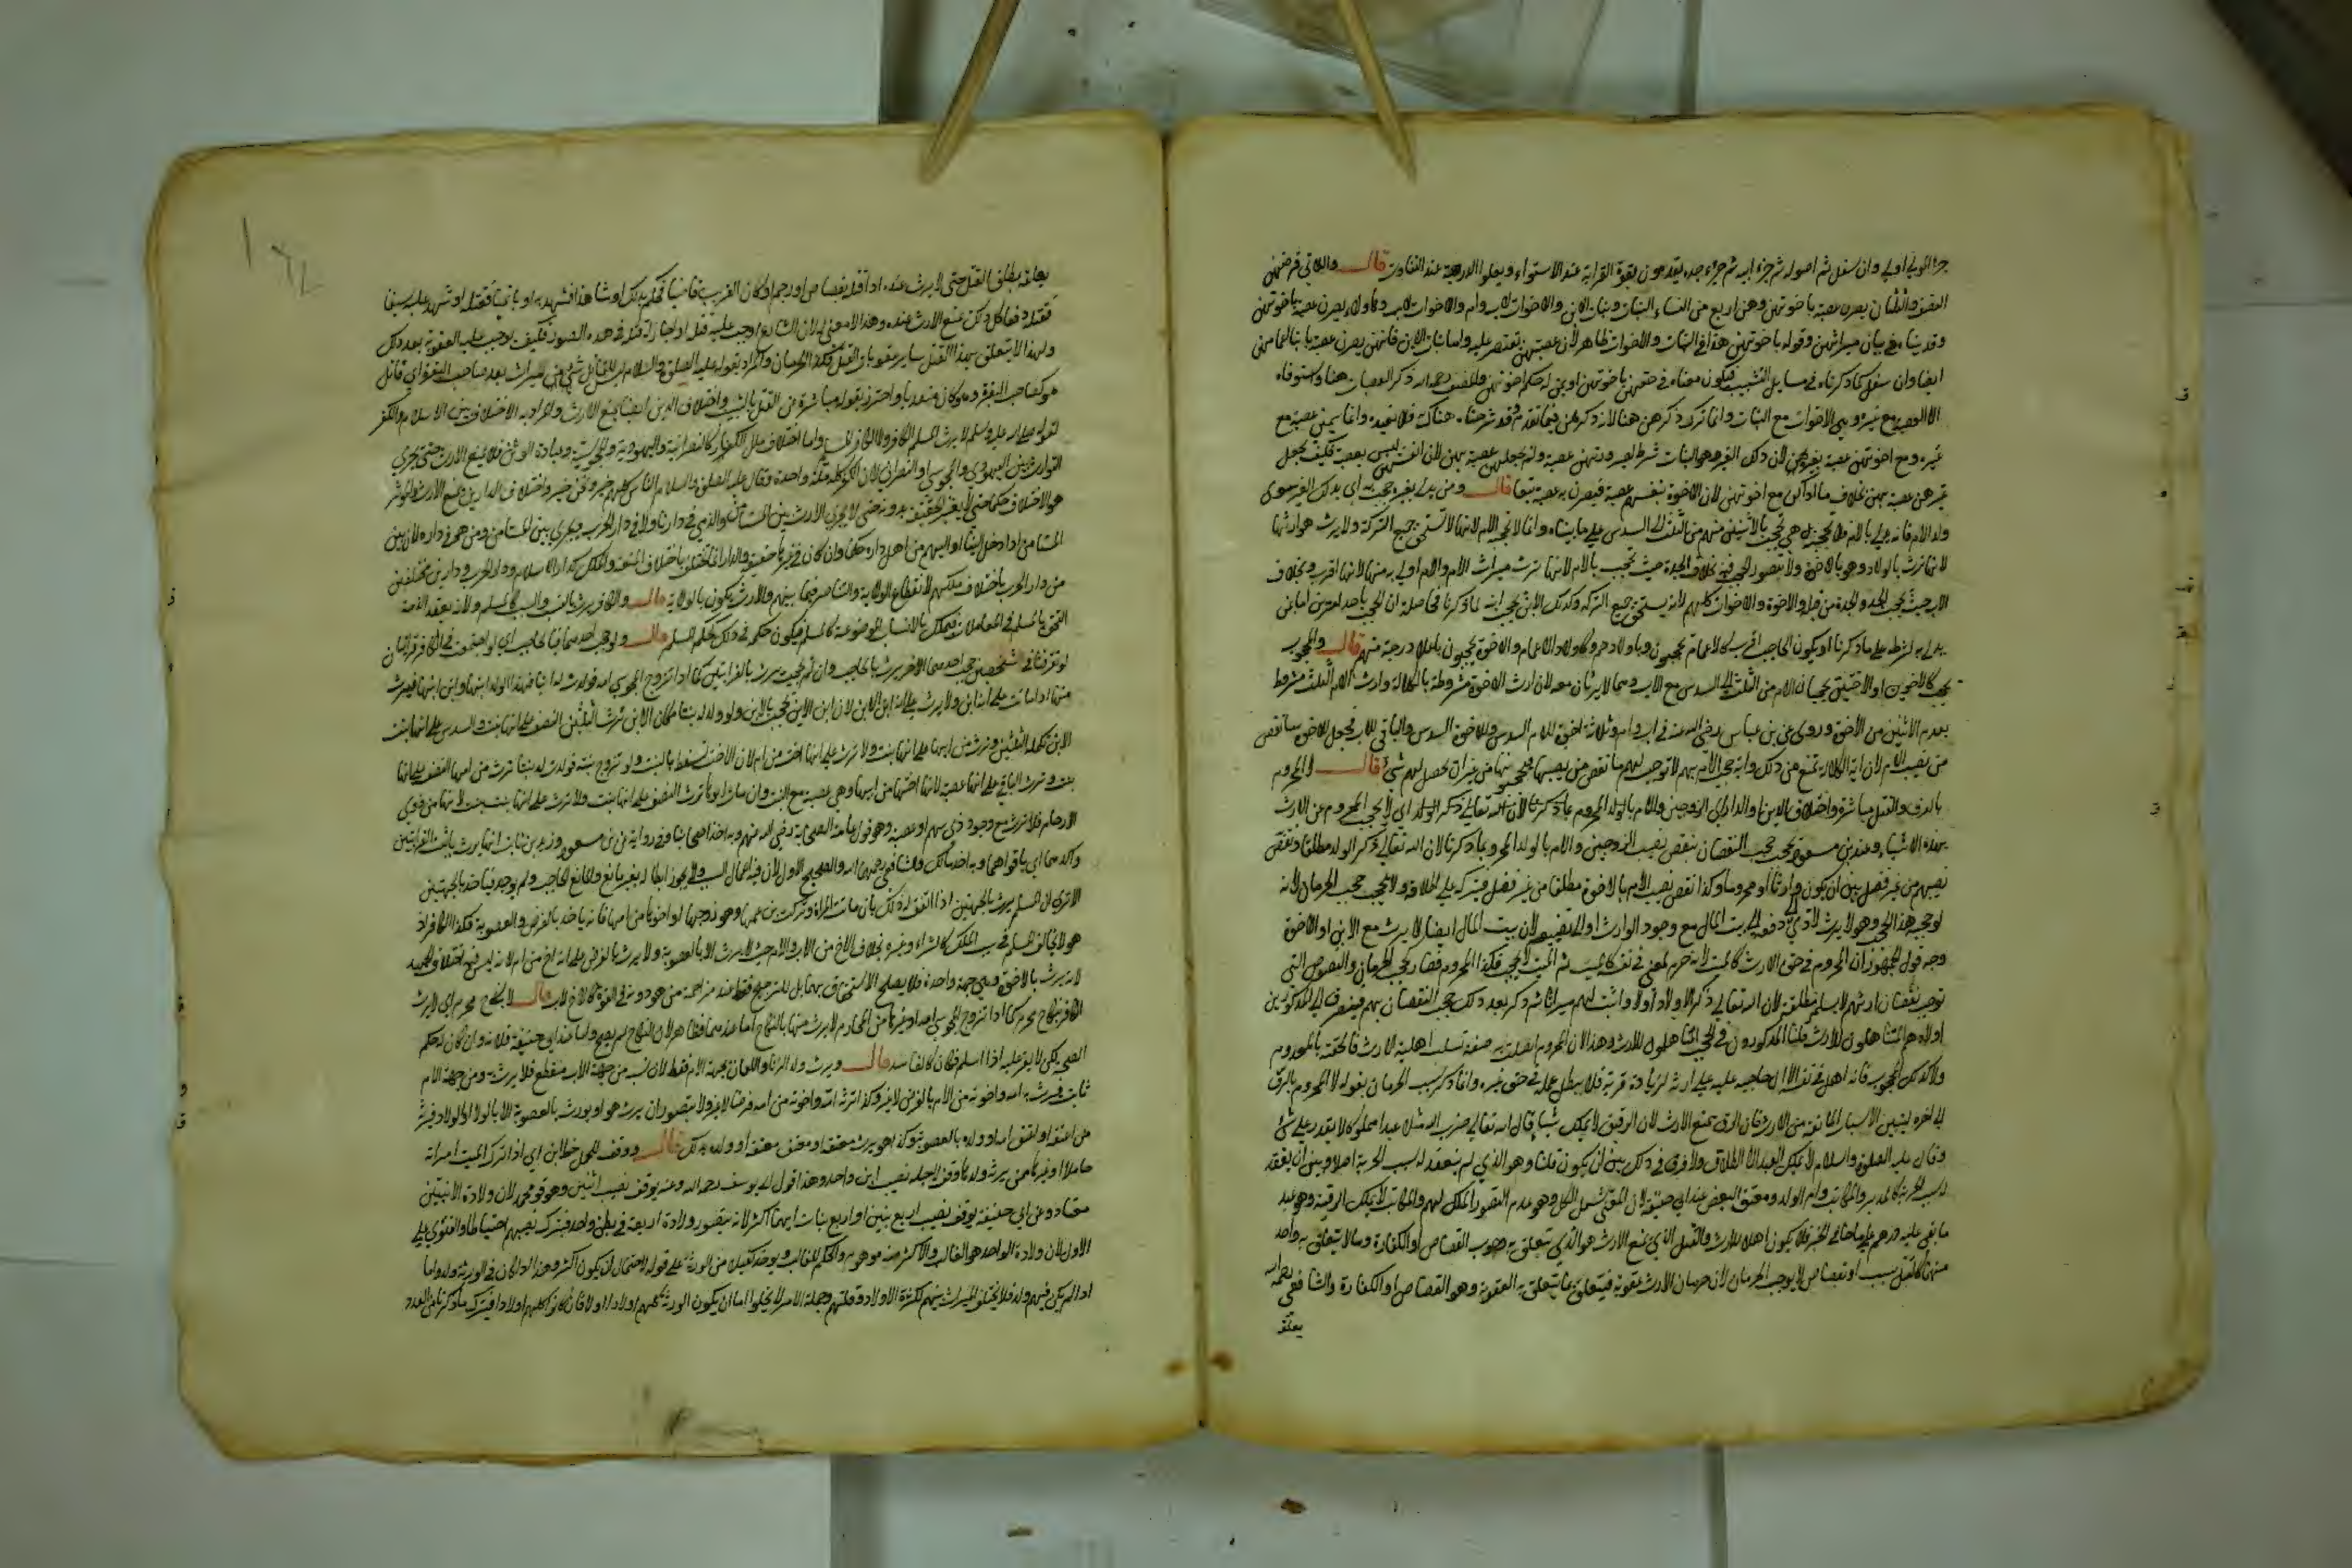 جزء المولي اولي وان سفل ثم اصوله ثم جزء ابيه ثم جزء جده يقدمون بقوة القرابة عند الاستواء وبعلو الدرجة عند التفاوت قال واللاتي فرضهن
النصف والثلثان يصرن عصبة باخوتهن وهن اربع من النساء البنات وبنات الابن والاخوات لاب وام والاخوات لاب وهاولاء يصرن عصبة باخوتهن
وقد بينا في بيان ميراثهن وقوله باخوتهن هذا في البنات والاخوات ظاهر لان عصبتهن تقتصر عليه واما بنات الابن فانهن يصرن عصبة بابناء اعمامهن
ايضا وان سفل كما ذكرنا في مسايل التشبيب فيكون معناه في حقهن باخوتهن او بمن له حكم اخوتهن والمصنف رحمه الله ذكر العصبات هنا واستوفاه
الا العصبة مع غيره وهي الاخوات مع البنات وانما ترك ذكرهن هنا لانه ذكرهن فيما تقدم وقد شرحناه هناك فلا نعيده وانما سمين عصبة مع
غيره ومع اخوتهن عصبة بغيرهن لان ذلك الغير وهو البنات شرط لصيرورتهن عصبة ولم يجعلهن عصبة بهن لان انفسهن ليس بعصبة فكيف تجعل
غيرهن عصبة بهن بخلاف ما اذا كن مع اخوتهن لان الاخوة بنفسهم عصبة فيصرن به عصبة تبعا قال ومن يدلي بغيره حجب به اي بذلك الغير سوى
ولد الام فانه يدلي بالام ولا تحجبه بل هي تحجب بالاثنين منهم من الثلث الي السدس على ما بيناه وانما لا تحجبه الام لانها لا تستحق جميع التركة ولا يرث هو ارثها
لانها ترث بالولاد وهو بالاخوة ولا يتصور الحجب فيه بخلاف الجدة حيث تحجب بالام لانها ترث ميراث الام والام اولي به منها لانها اقرب وبخلاف
الاب حيث يحجب الجد والجدة من قبله والاخوة والاخوات كلهم لانه يستحق جميع التركة وكذلك الابن يحجب ابنه لما ذكرنا فحاصله ان الحجب باحد امرين اما بان
يدلي به بشرط على ما ذكرنا او يكون الحاجب اقرب كالاعمام يحجبون وباولادهم وكاولاد الاعمام والاخوة يحجبون باعلا درجة منهم قال والمحجوب
يحجب كالاخوين او الاختين يحجبان الام من الثلث الي السدس مع الاب وهما لا يرثان معه لان ارث الاخوة مشروط بالكلالة وارث الام الثلث مشروط
بعدم الاثنين من الاخوة وروي عن بن عباس رضي الله عنه في اب وام وثلاثة اخوة للام السدس وللاخوة السدس والباقي للاب فجعل للاخوة ما نقص
من نصيب الام لان اية الكلالة تمنع من ذلك واية حجب الام بهم لا توجب لهم ما نقص من نصيبها فتحجبونها من غير ان يحصل لهم شيء قال والمحروم
بالرق والقتل مباشرة واختلاف الدين او الدار اي الزوجين والام بالولد المحروم بما ذكرنا لان الله تعالى ذكر الولد اي لا يحجب المحروم عن الارث
بهذه الاشياء وعند بن مسعود يحجب حجب النقصان بنقص نصيب الزوجين والام بالولد المحروم بما ذكرنا لان الله تعالى ذكر الولد مطلقا ونقص
نصيبهم من غير فصل بين ان يكون وارثا او محروما وكذا نقص نصيب الام بالاخوة مطلقا من غير فصل فيتركه على اطلاقه ولا يحجب حجب الحرمان لانه
لو حجب هذا الحجب وهو لا يرث لادي الي دفعه الي بيت المال مع وجود الوارث او الي تضييعه لان بيت المال ايضا لا يرث مع الابن او الاخوة
وجه قول الجمهور ان المحروم في حق الارث كالميت لانه حرم لمعنى في نفسه كالميت ثم الميت لا يحجب فكذا المحروم فصار كحجب الحرمان والنصوص التي
توجب نقصان ارثهم لا نسلم مطلقة لان الله تعالى ذكر الاولاد اولا واثبت لهم ميراثا ثم ذكر بعد ذلك حجب النقصان بهم فينصرف الي المذكورين
اولا وهم المتاهلون للارث فلنا المذكورون في الحجب المتاهلون للارث وهذا لان المحروم اتصلت به صفة تسلب اهلية الارث فالحقته بالمعدوم
ولا كذلك المحجوب فانه اهل في نفسه الا ان حاجبه غلبه على ارثه لزيادة قربه فلا يبطل عمله في حق غيره وانما ذكر سبب الحرمان بقوله لا المحروم بالرق
الي اخره ليبين الاسباب المانعة من الارث فان الرق يمنع الارث لان الرقيق لا يملك شيئا قال الله تعالى ضرب الله مثلا عبدا مملوكا لا يقدر على شئ
وقال عليه الصلاة والسلام لا يملك العبد الا الطلاق ولا فرق في ذلك بين ان يكون قنا وهو الذي لم ينعقد له سبب الحرية اصلا وبين ان ينعقد
له سبب الحرية كالمدبر والمكاتب وام الولد ومعتق البعض عند ابي حنيفة لان المعنى يشمل الكل وهو عدم تصور الملك لهم والمكاتب لا يملك الرقبة وهو عبد
ما بقي عليه درهم على ما جاء في الخبر فلا يكون اهلا للارث والقتل الذي يمنع الارث هو الذي يتعلق به وجوب القصاص او الكفارة وما لا يتعلق به واحد
منهما كالقتل بسبب او بقصاص لا يوجب الحرمان لان حرمان الارث عقوبة فيتعلق بما يتعلق به العقوبة وهو القصاص او الكفارة والشافعي رحمه الله
يعلقه
يعلقه بمطلق القتل حتى لا يرث عنده اذا قتله بقصاص او رجم او كان القريب قاضيا فحكم بذلك او شاهدا فشهد به او باغيا فقتله او شهر عليه سيفا
فقتله دفعا كل ذلك يمنع الارث عنده وهذا لا معنى له لان الشارع اوجب عليه قتله او اجاز له قتله في هذه الصور فكيف يوجب عليه العقوبة بعد ذلك
ولهذا لا يتعلق بهذا القتل ساير عقوبات القتل فكذا الحرمان والمراد بقوله عليه الصلاة والسلام ليس للقاتل شيء من الميراث بعد صاحب البقرة اي قاتل
هو كصاحب البقرة وهو كان متعديا واحترز بقوله مباشرة عن القتل بالسبب واختلاف الدين ايضا يمنع الارث والمراد به الاختلاف بين الاسلام والكفر
لقوله صلى الله عليه وسلم لا يرث المسلم الكافر ولا الكافر المسلم واما اختلاف ملل الكفار كالنصرانية واليهودية والمجوسية وعبادة الوثن فلا يمنع الارث حتى يجري
التوارث بين اليهودي والمجوسي والنصراني لان الكفر كله ملة واحدة وقال عليه الصلاة والسلام الناس كلهم حيز ونحن حيز واختلاف الدارين يمنع الارث والموثر
هو الاختلاف حكما حتى لا يعتبر الحقيقة بدونه حتى لا يجري الارث بين المستامن والذمي في دارنا ولا في دار الحرب ويجري بين المستامن ومن هو في داره لان
المستامن اذا دخل الينا او اليهم من اهل داره حكما وان كان في غيرها حقيقة والدار انما تختلف باختلاف المنعة والملك كدار الاسلام ودار الحرب ودارين مختلفين
من دار الحرب باختلاف ملكهم لانقطاع الولاية والتناصر فيما بينهم والارث يكون بالولاية قال والكافر يرث بالنسب والسبب كالمسلم ولانه بعقد الذمة
التحق بالمسلم في المعاملات فيملك بالاسباب الموضوعة كالمسلم فيكون حكمه في ذلك كحكم المسلم قال ولو حجب احدهما فبالحاجب اي لو اجتمعت في الكافر قرابتان
لو تفرقتا في شخصين حجب احدهما الاخر يرث بالحاجب وان لم يحجب يرث بالقرابتين كما اذا تزوج المجوسي امه فولدت له ابنا فهذا الولد ابنها وابن ابنها فيرث
منها اذا ماتت على انه ابن ولا يرث على انه ابن الابن لان ابن الابن يحجب بالابن ولو ولدت له بنتا مكان الابن ترث الثلثين النصف على انها بنت والسدس على انها بنت
الابن تكملة الثلثين وترث من ابيها على انها بنت ولا ترث على انها اخت من ام لان الاخت تسقط بالبنت ولو تزوج بنته فولدت له بنتا ترث من امها النصف على انها
بنت وترث الباقي على انها عصبة لانها اختها من ابيها وهي عصبة مع البنت وان مات ابوها ترث النصف على انها بنت ولا ترث على انها بنت بنت لانها من ذوي
الارحام فلا ترث مع وجود ذي سهم او عصبة وهو قول عامة الصحابة رضي الله عنهم وبه اخذ اصحابنا وفي رواية عن بن مسعود وزيد بن ثابت انها ترث باثبت القرابتين
واكدهما اي باقواهما وبه اخذ مالك والشافعي رحمهما الله والصحيح الاول لان فيه اعمال السببين ولا يجوز ابطاله بغير مانع والمانع الحاجب ولم يوجد فياخذ بالجهتين
الا ترى ان المسلم يرث بالجهتين اذا اتفق له ذلك بان ماتت المراة وتركت بن عمها وهو زوجها او اخوها من امها فانه ياخذ بالفرض والعصوبة فكذا الكافر اذ
هو لا يخالف المسلم في سبب الملك كالشراء وغيره بخلاف الاخ من الاب والام حيث لا يرث الا بالعصوبة ولا يرث بالفرض على انه اخ من ام لانه ليس فيه اختلاف الجهة
لانه يرث بالاخوة وهي جهة واحدة فلا يصلح الاستحقاق بهما بل للترجيح فقط عند مزاحمة من هو دونه في القوة كالاخ لاب قال لا بنكاح محرم اي لا يرث
الكافر بنكاح محرم كما اذا تزوج المجوسي امه او غيرها من المحارم لا يرث منها بالنكاح اما عندهما فظاهر لان النكاح لم يصح واما عند ابي حنيفة فلانه وان كان له حكم
الصحة لكن لا يقر عليه اذا اسلم فكان كالفاسد قال ويرث ولد الزنا واللعان بجهة الام فقط لان نسبه من جهة الاب منقطع فلا يرث به ومن جهة الام
ثابت فيرث به امه واخوته من الام بالفرض لا غير وكذا ترثه امه واخوته من امه فرضا لا غير ولا يتصور ان يرث هو او يورث بالعصوبة الا بالولاء او الولاد فيرثه
من اعتقه او اعتق امه او ولده بالعصوبة وكذا هو يرث معتقه او معتق معتقه او ولده بذلك قال ووقف للحمل حظ ابن اي اذا ترك الميت امراته
حاملا او غيرها ممن يرثه ولدها وقف لاجله نصيب ابن واحد وهذا قول ابي يوسف رحمه الله وعنه يوقف نصيب اثنين وهو قول محمد لان ولادة الاثنين
معتاد وعن ابي حنيفة يوقف نصيب اربع بنين او اربع بنات ايهما اكثر لانه يتصور ولادة اربعة في بطن واحد فيترك نصيبهم احتياطا والفتوي على
الاول لان ولادة الواحد هو الغالب والاكثر منه موهوم والحكم للغالب ويوخذ كفيل من الورثة على قوله لاحتمال ان يكون اكثر وهذا اذا كان في الورثة ولد واما
اذا لم يكن فيهم ولد فلا يختلف الميراث بينهم لكثرة الاولاد وقلتهم وجملة الامر لا يخلوا اما ان يكون الورثة كلهم اولادا او لا فان كانوا كلهم اولادا فيترك ما ذكرنا من العدد